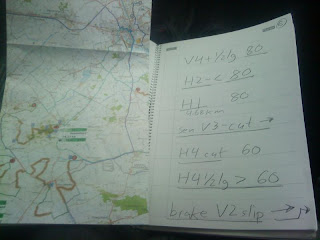 V4+½lg 80
H2-< 80
H1 80
V3-cut →
H4 cut 60
H4½lg > 60
brake V2 slip →